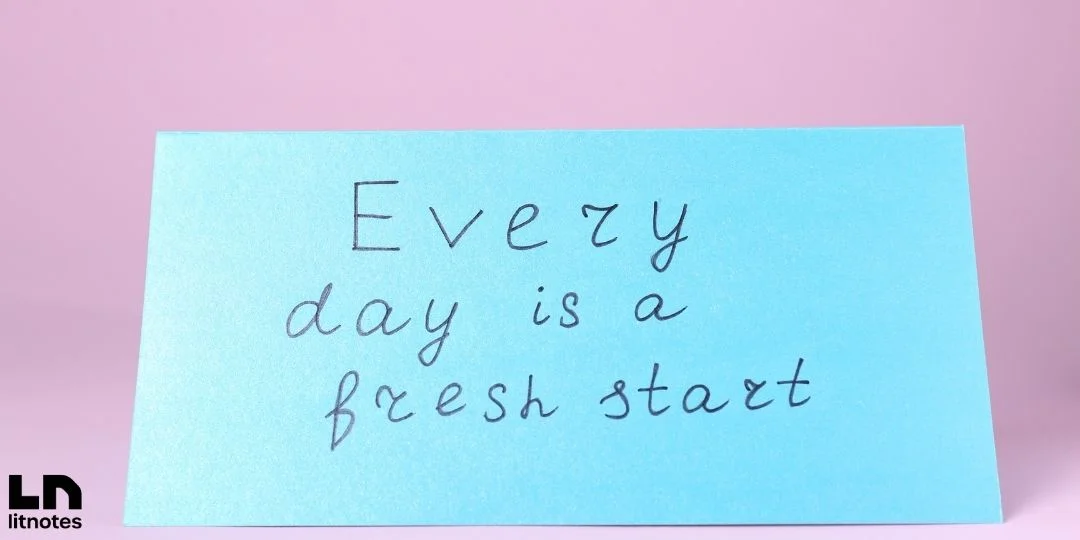 Every
day is a
fresh start
LN
litnotes